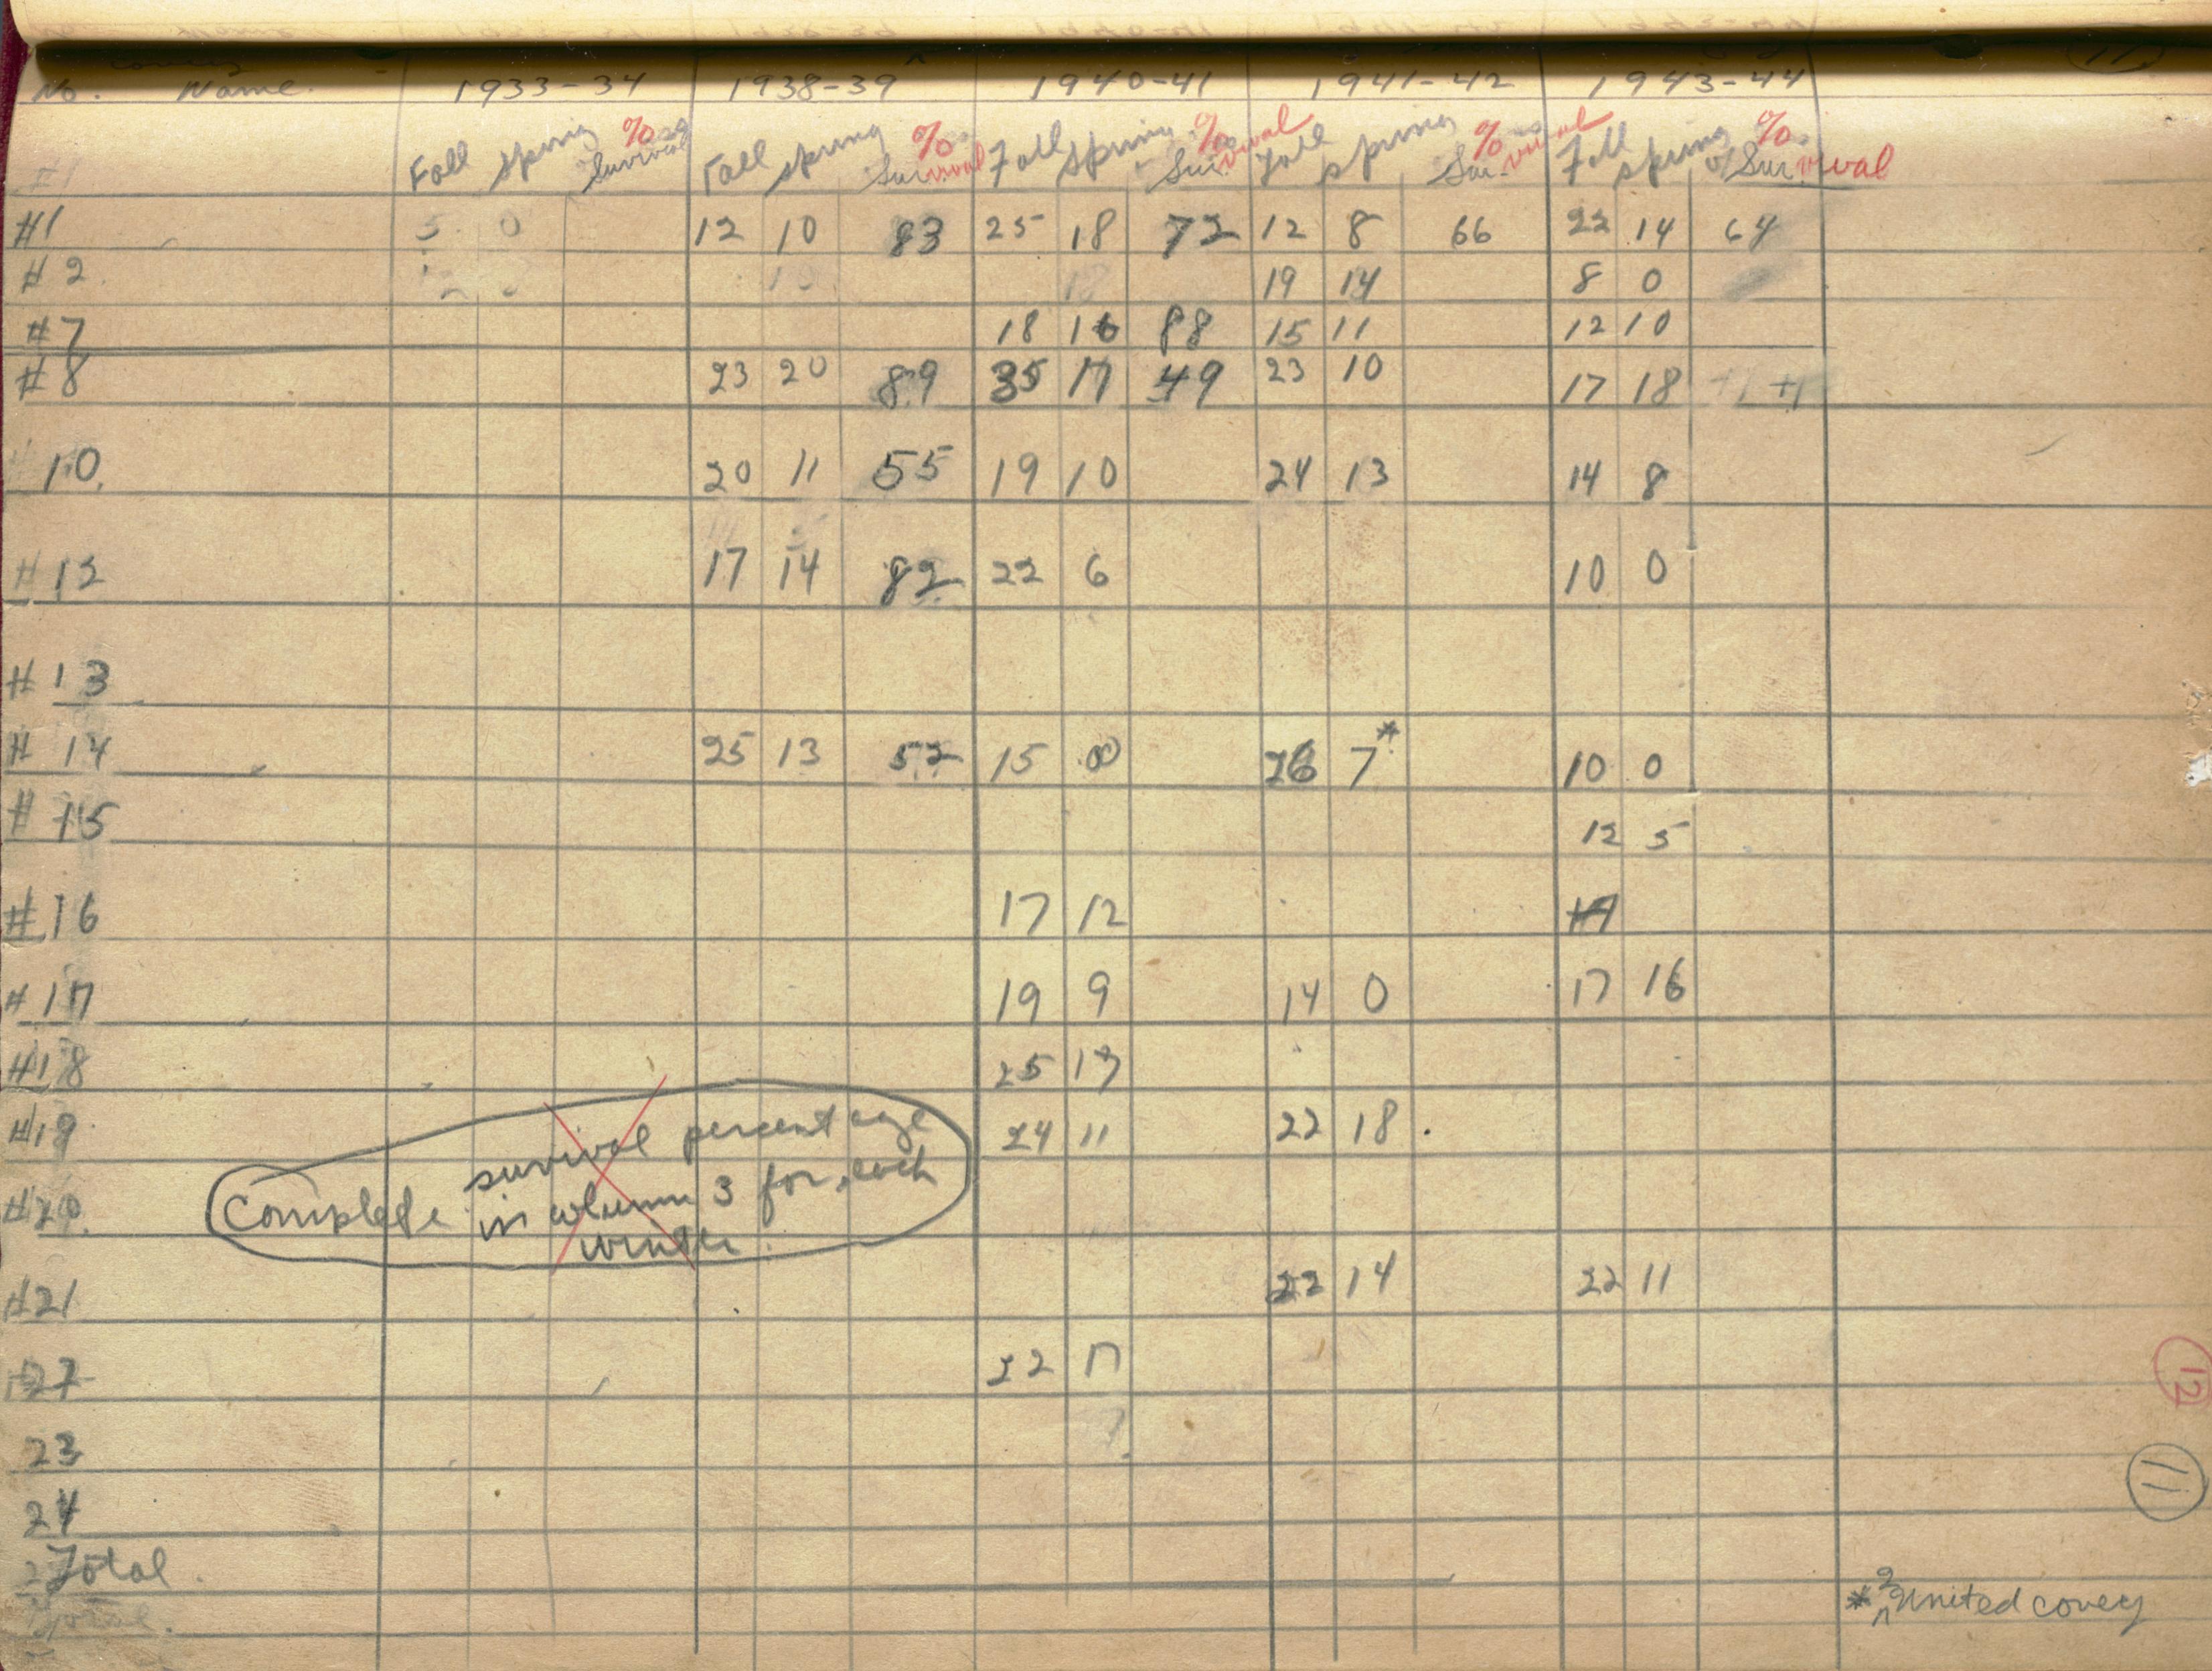 covey
No. Name. 1933-34 1938-39 1940-41 1941-42 1943-44
Fall spring % Survival Fall spring % Survival Fall spring % Survival Fall spring % Survival Fall spring % Survival
#1
#1 5 0 12 10 83 25 18 72 12 8 66 22 14 64
#2 19 14 8 0
#7 18 16 88 15 11 12 10
#8 23 20 89 35 17 49 23 10 17 18 +1
10. 20 11 55 19 10 24 13 14 8
#12 17 14 82 22 6 10 0
#13
#14 25 13 52 15 0 26 7* 10 0
#15 12 5
#16 17 12
#17 19 9 14 0 17 16
#18 25
#19 24 11 22 18.
#20.
#21 22 14 22 11
22 17
23
24
Total.
Total.
Complete survival percentage
in column 3 for each
winter.
12
11
* 2 United covey